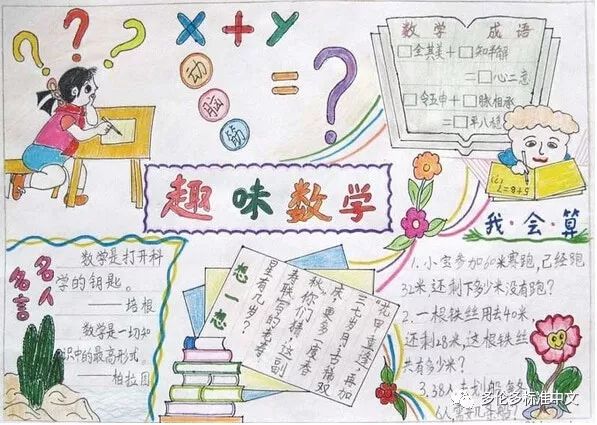 ? ? ?
x+y
动
脑
筋
=?
数学 成语
□全其美+□知半解
=□心二意
□令五申+□脉相承
=□平八稳
趣味数学
我·会·算
名人
名言
数学是打开科
学的钥匙。
——培根
数学是一切知
识中的最高形式。
——柏拉图
想一想
重逢,再加
三七岁月;古稀双
庆,更多一度春
秋。你们猜,这副
春联写的老寿
星有几岁?
1.小宝参加60米赛跑,已经跑
32米,还剩下多少米没有跑?
2.一根铁丝用去40米,
还剩28米,这根铁丝
共有多少米?
3.38人去划船,每
6人,需要几条船?
多伦多标准中文